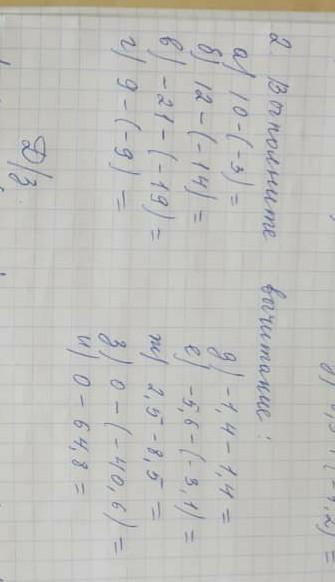 2. Выполните вычитание:
а) 10-(-3)=
б) 12-(-14)=
в) -21-(-19)=
г) 9-(-9)=
д) -1,4-1,4=
е) -5,6-(-3,1)=
ж) 2,5-8,5=
з) 0-(-40,6)=
и) 0-64,8=
Д/з.